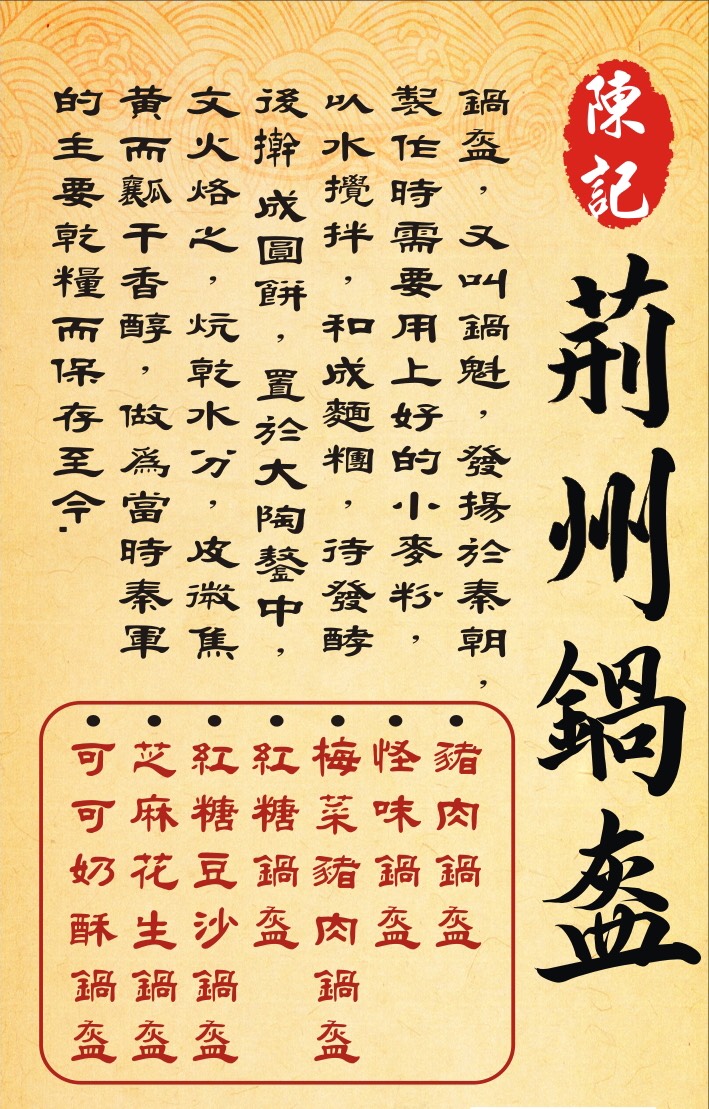 陳記
荊州鍋盔
鍋盔，又叫鍋魁，發揚於秦朝，
製作時需要用上好的小麥粉，
以水攪拌，和成麵糰，待發酵
後擀成圓餅，置於大陶鏊中，
文火烙之，炕乾水分，皮微焦
黃而瓤干香醇，做為當時秦軍
的主要乾糧而保存至今.
●豬肉鍋盔
●怪味鍋盔
●梅菜豬肉鍋盔
●紅糖鍋盔
●紅糖豆沙鍋盔
●芝麻花生鍋盔
●可可奶酥鍋盔